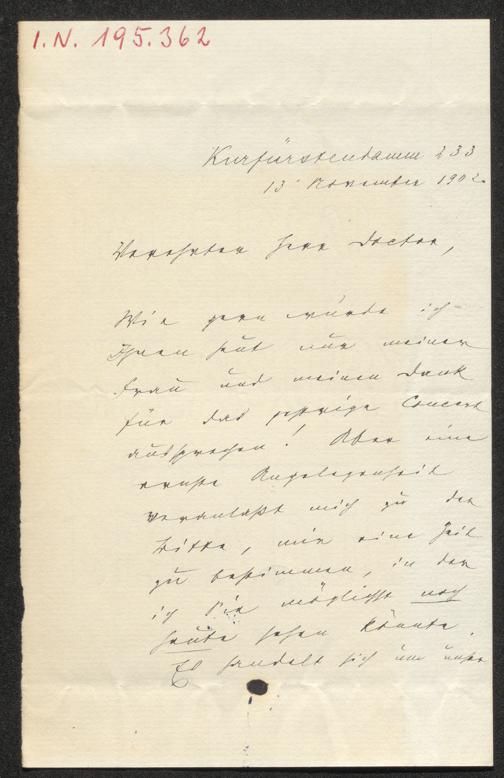 I.N. 195.362
Kurfürstendamm 233
13 November 1902.
Verehrter Herr Doctor,
Wie gern würde ich
Ihnen heut nur meiner
Frau und meinen Dank
für das gestrige Concert
aussprechen! Aber eine
ernste Angelegenheit
veranlaßt mich zu der
Bitte, mir eine Zeit
zu bestimmen, in der
ich Sie möglichst noch
heute sehen könnte.
Es handelt sich um